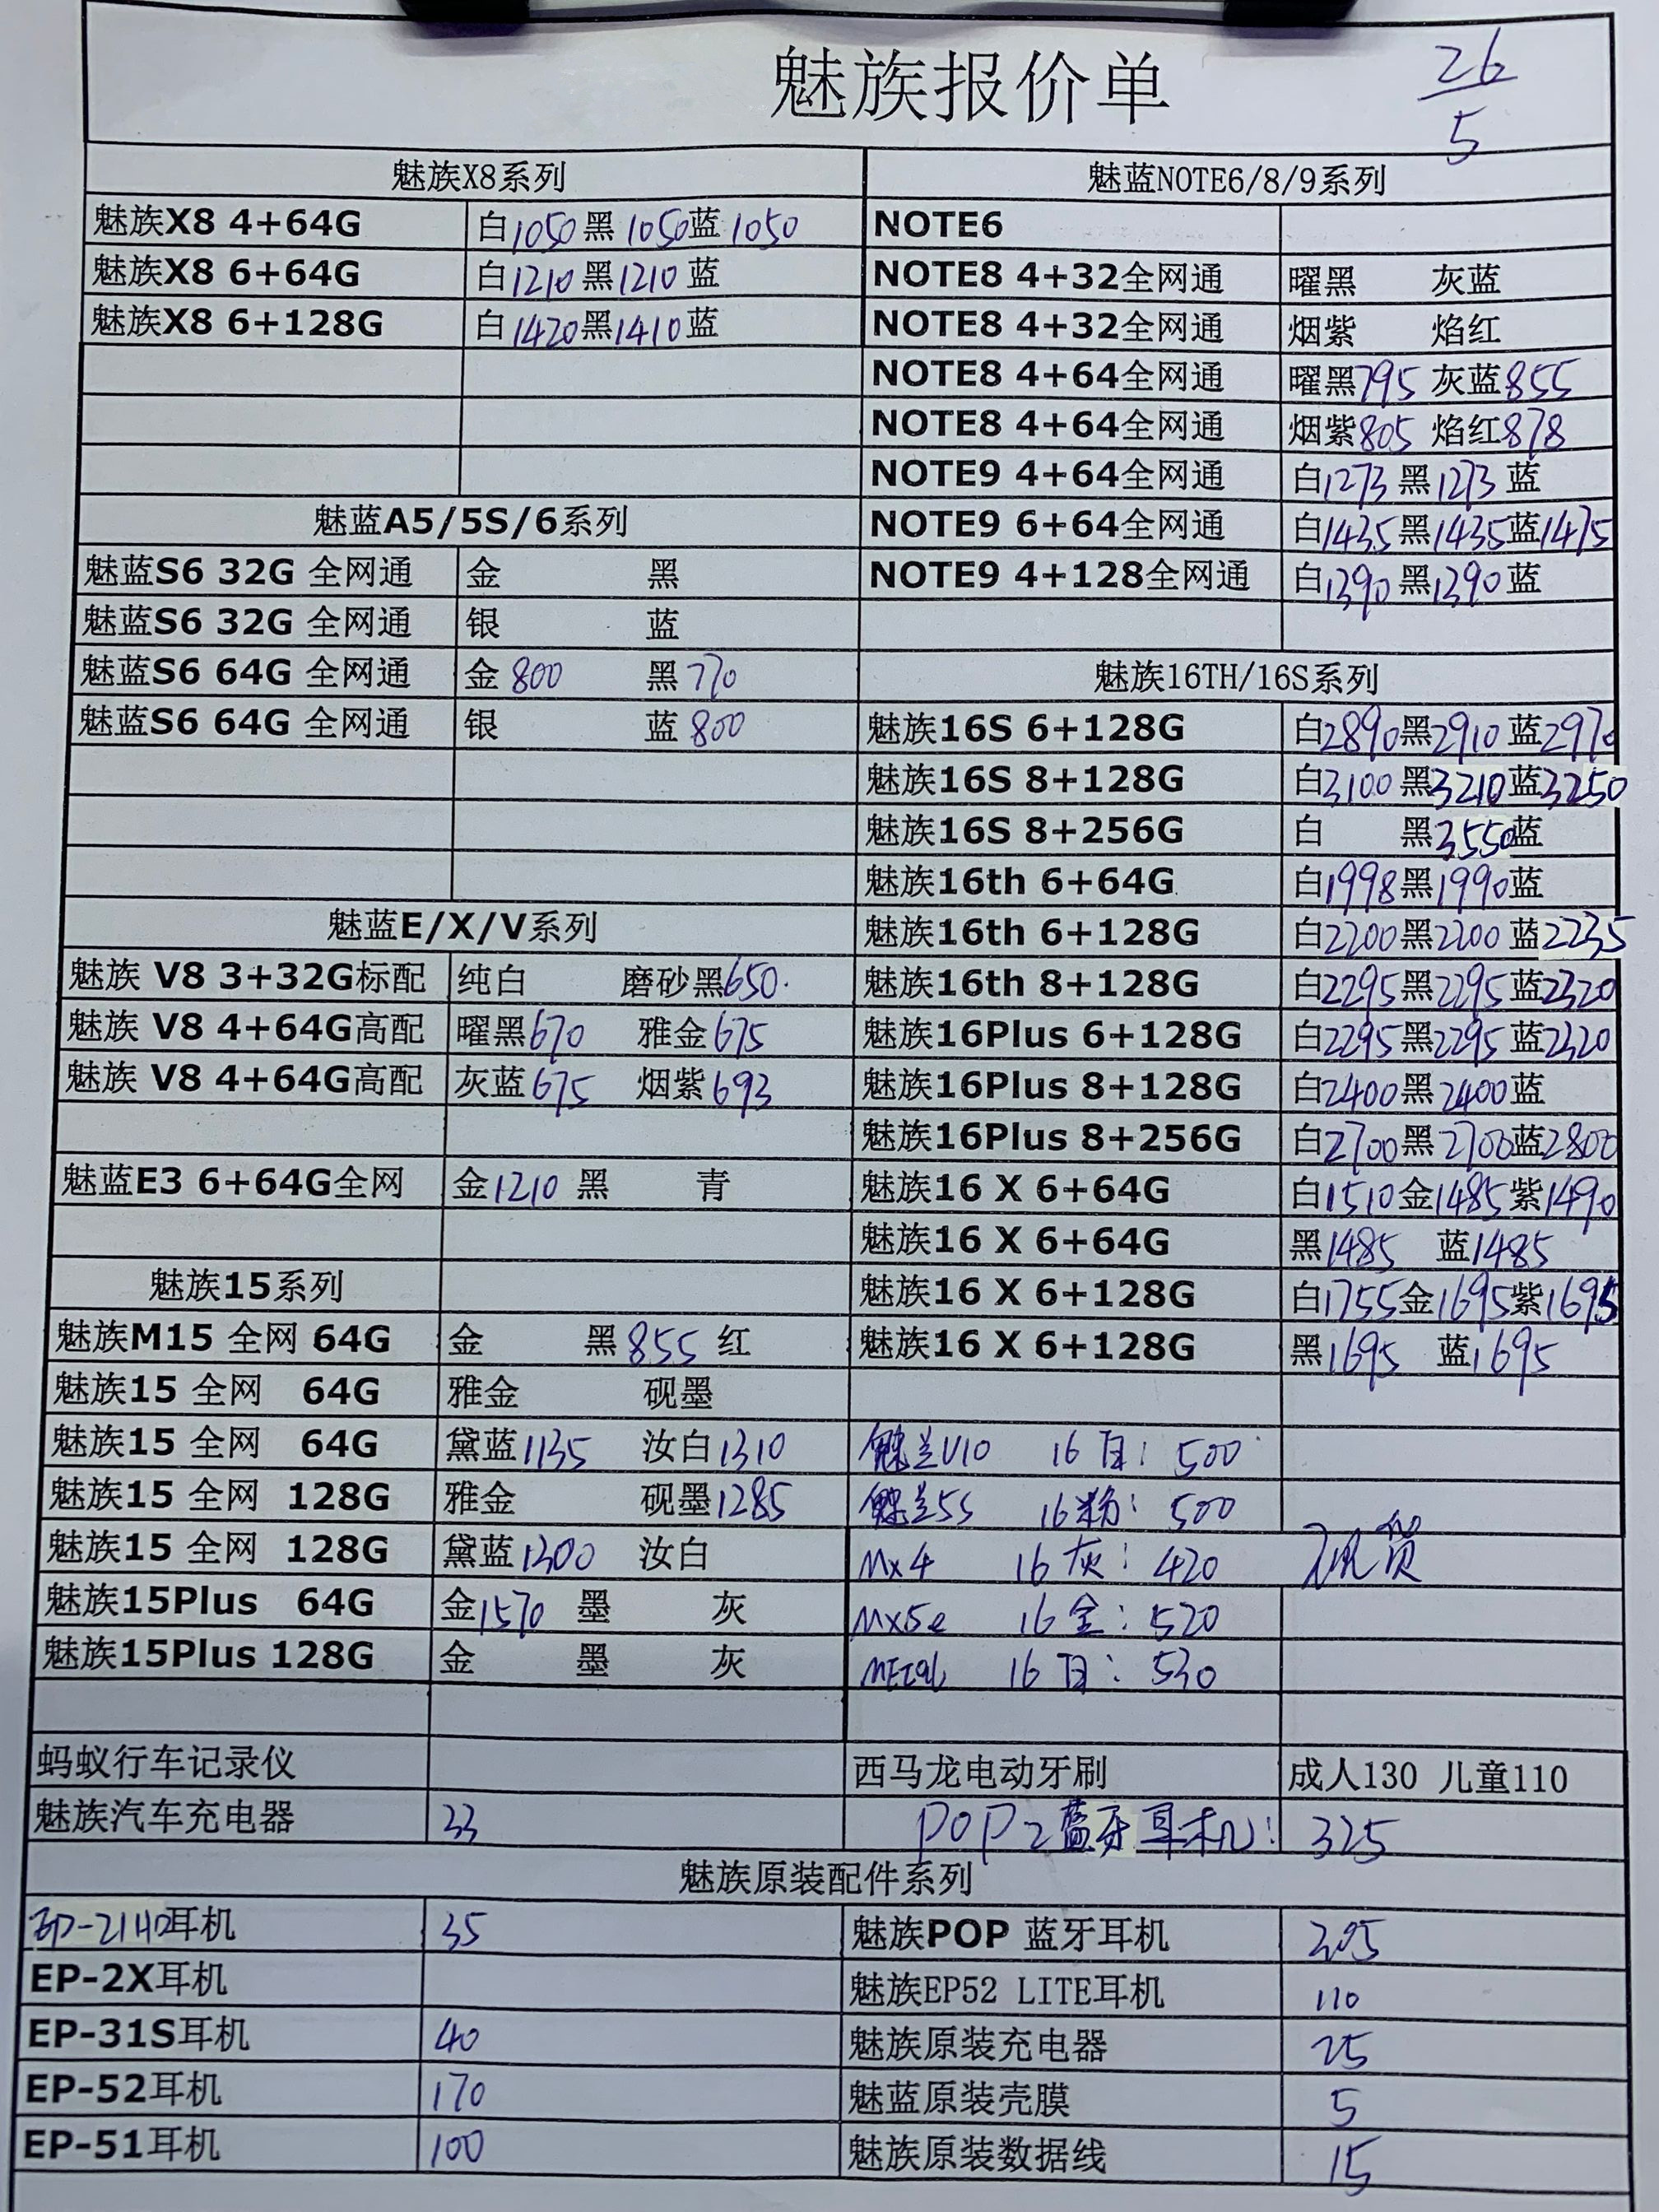 魅族报价单
26/5
魅族X8系列
魅族X8 4+64G 白1050 黑1050 蓝1050
魅族X8 6+64G 白1210 黑1210 蓝
魅族X8 6+128G 白1420 黑1410 蓝
魅蓝A5/5S/6系列
魅蓝S6 32G 全网通 金 黑
魅蓝S6 32G 全网通 银 蓝
魅蓝S6 64G 全网通 金800 黑770
魅蓝S6 64G 全网通 银 蓝800
魅蓝E/X/V系列
魅族 V8 3+32G标配 纯白 磨砂黑650.
魅族 V8 4+64G高配 曜黑670 雅金675
魅族 V8 4+64G高配 灰蓝675 烟紫693
魅蓝E3 6+64G全网 金1210 黑 青
魅族15系列
魅族M15 全网 64G 金 黑855 红
魅族15 全网 64G 雅金 砚墨
魅族15 全网 64G 黛蓝1135 汝白1310
魅族15 全网 128G 雅金 砚墨1285
魅族15 全网 128G 黛蓝1300 汝白
魅族15Plus 64G 金1570 墨 灰
魅族15Plus 128G 金 墨 灰
蚂蚁行车记录仪
魅族汽车充电器 33
魅蓝NOTE6/8/9系列
NOTE6
NOTE8 4+32全网通 曜黑 灰蓝
NOTE8 4+32全网通 烟紫 焰红
NOTE8 4+64全网通 曜黑795 灰蓝855
NOTE8 4+64全网通 烟紫805 焰红878
NOTE9 4+64全网通 白1273 黑1273 蓝
NOTE9 6+64全网通 白1435 黑1435 蓝1475
NOTE9 4+128全网通 白1390 黑1390 蓝
魅族16TH/16S系列
魅族16S 6+128G 白2890 黑2910 蓝2970
魅族16S 8+128G 白3100 黑3210 蓝3250
魅族16S 8+256G 白 黑3550 蓝
魅族16th 6+64G 白1998 黑1990 蓝
魅族16th 6+128G 白2200 黑2200 蓝2235
魅族16th 8+128G 白2295 黑2295 蓝2320
魅族16Plus 6+128G 白2295 黑2295 蓝2320
魅族16Plus 8+128G 白2400 黑2400 蓝
魅族16Plus 8+256G 白2700 黑2700 蓝2800
魅族16 X 6+64G 白1510 金1485 紫1490
魅族16 X 6+64G 黑1485 蓝1485
魅族16 X 6+128G 白1755 金1695 紫1695
魅族16 X 6+128G 黑1695 蓝1695
魅兰U10 16白: 500
魅兰5S 16粉: 500
MX4 16灰: 420 现货
MX5e 16金: 520
METAL 16白: 530
西马龙电动牙刷 成人130 儿童110
POP2蓝牙耳机: 325
魅族原装配件系列
EP-21HD耳机 35
EP-2X耳机
EP-31S耳机 40
EP-52耳机 170
EP-51耳机 100
魅族POP 蓝牙耳机 305
魅族EP52 LITE耳机 110
魅族原装充电器 25
魅蓝原装壳膜 5
魅族原装数据线 15